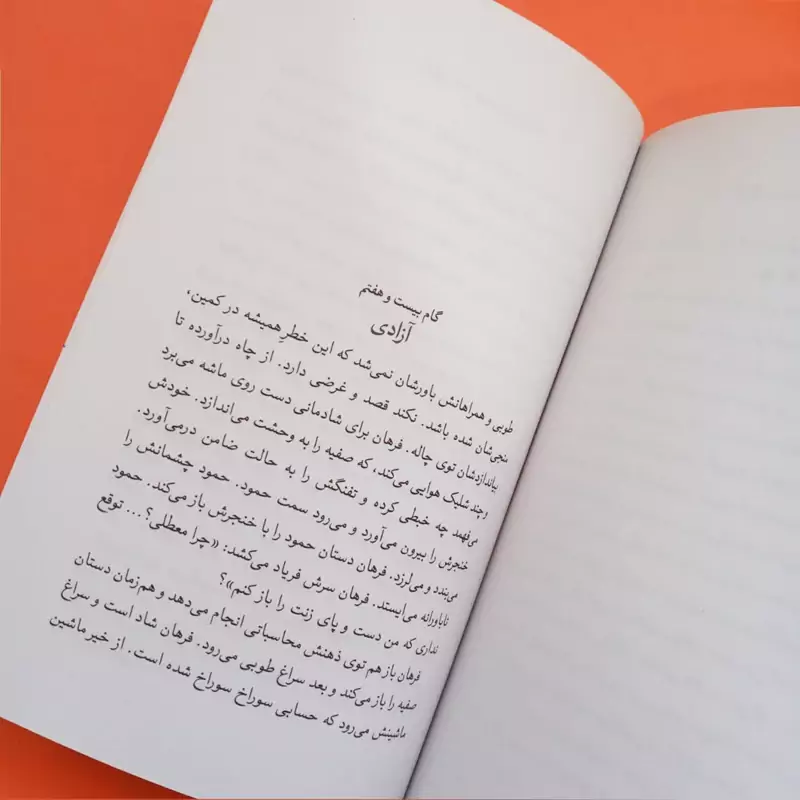 گام بیست و هفتم
آزادی
طوبی و همراهانش باورشان نمی‌شد که این خطرِ همیشه در کمین،
منجی‌شان شده باشد. نکند قصد و غرضی دارد. از چاه درآورده تا
بیاندازدشان توی چاله. فرهان برای شادمانی دست روی ماشه می‌برد
و چند شلیک هوایی می‌کند، که صفیه را به وحشت می‌اندازد. خودش
می‌فهمد چه خبطی کرده و تفنگش را به حالت ضامن درمی‌آورد.
خنجرش را بیرون می‌آورد و می‌رود سمت حمود. حمود چشمانش را
می‌بندد و می‌لرزد. فرهان دستان حمود را با خنجرش باز می‌کند. حمود
ناباورانه می‌ایستد. فرهان سرش فریاد می‌کشد: «چرا معطلی؟... توقع
نداری که من دست و پای زنت را باز کنم»؟
فرهان باز هم توی ذهنش محاسباتی انجام می‌دهد و هم‌زمان دستان
صفیه را باز می‌کند و بعد سراغ طوبی می‌رود. فرهان شاد است و سراغ
ماشینش می‌رود که حسابی سوراخ سوراخ شده است. از خیر ماشین